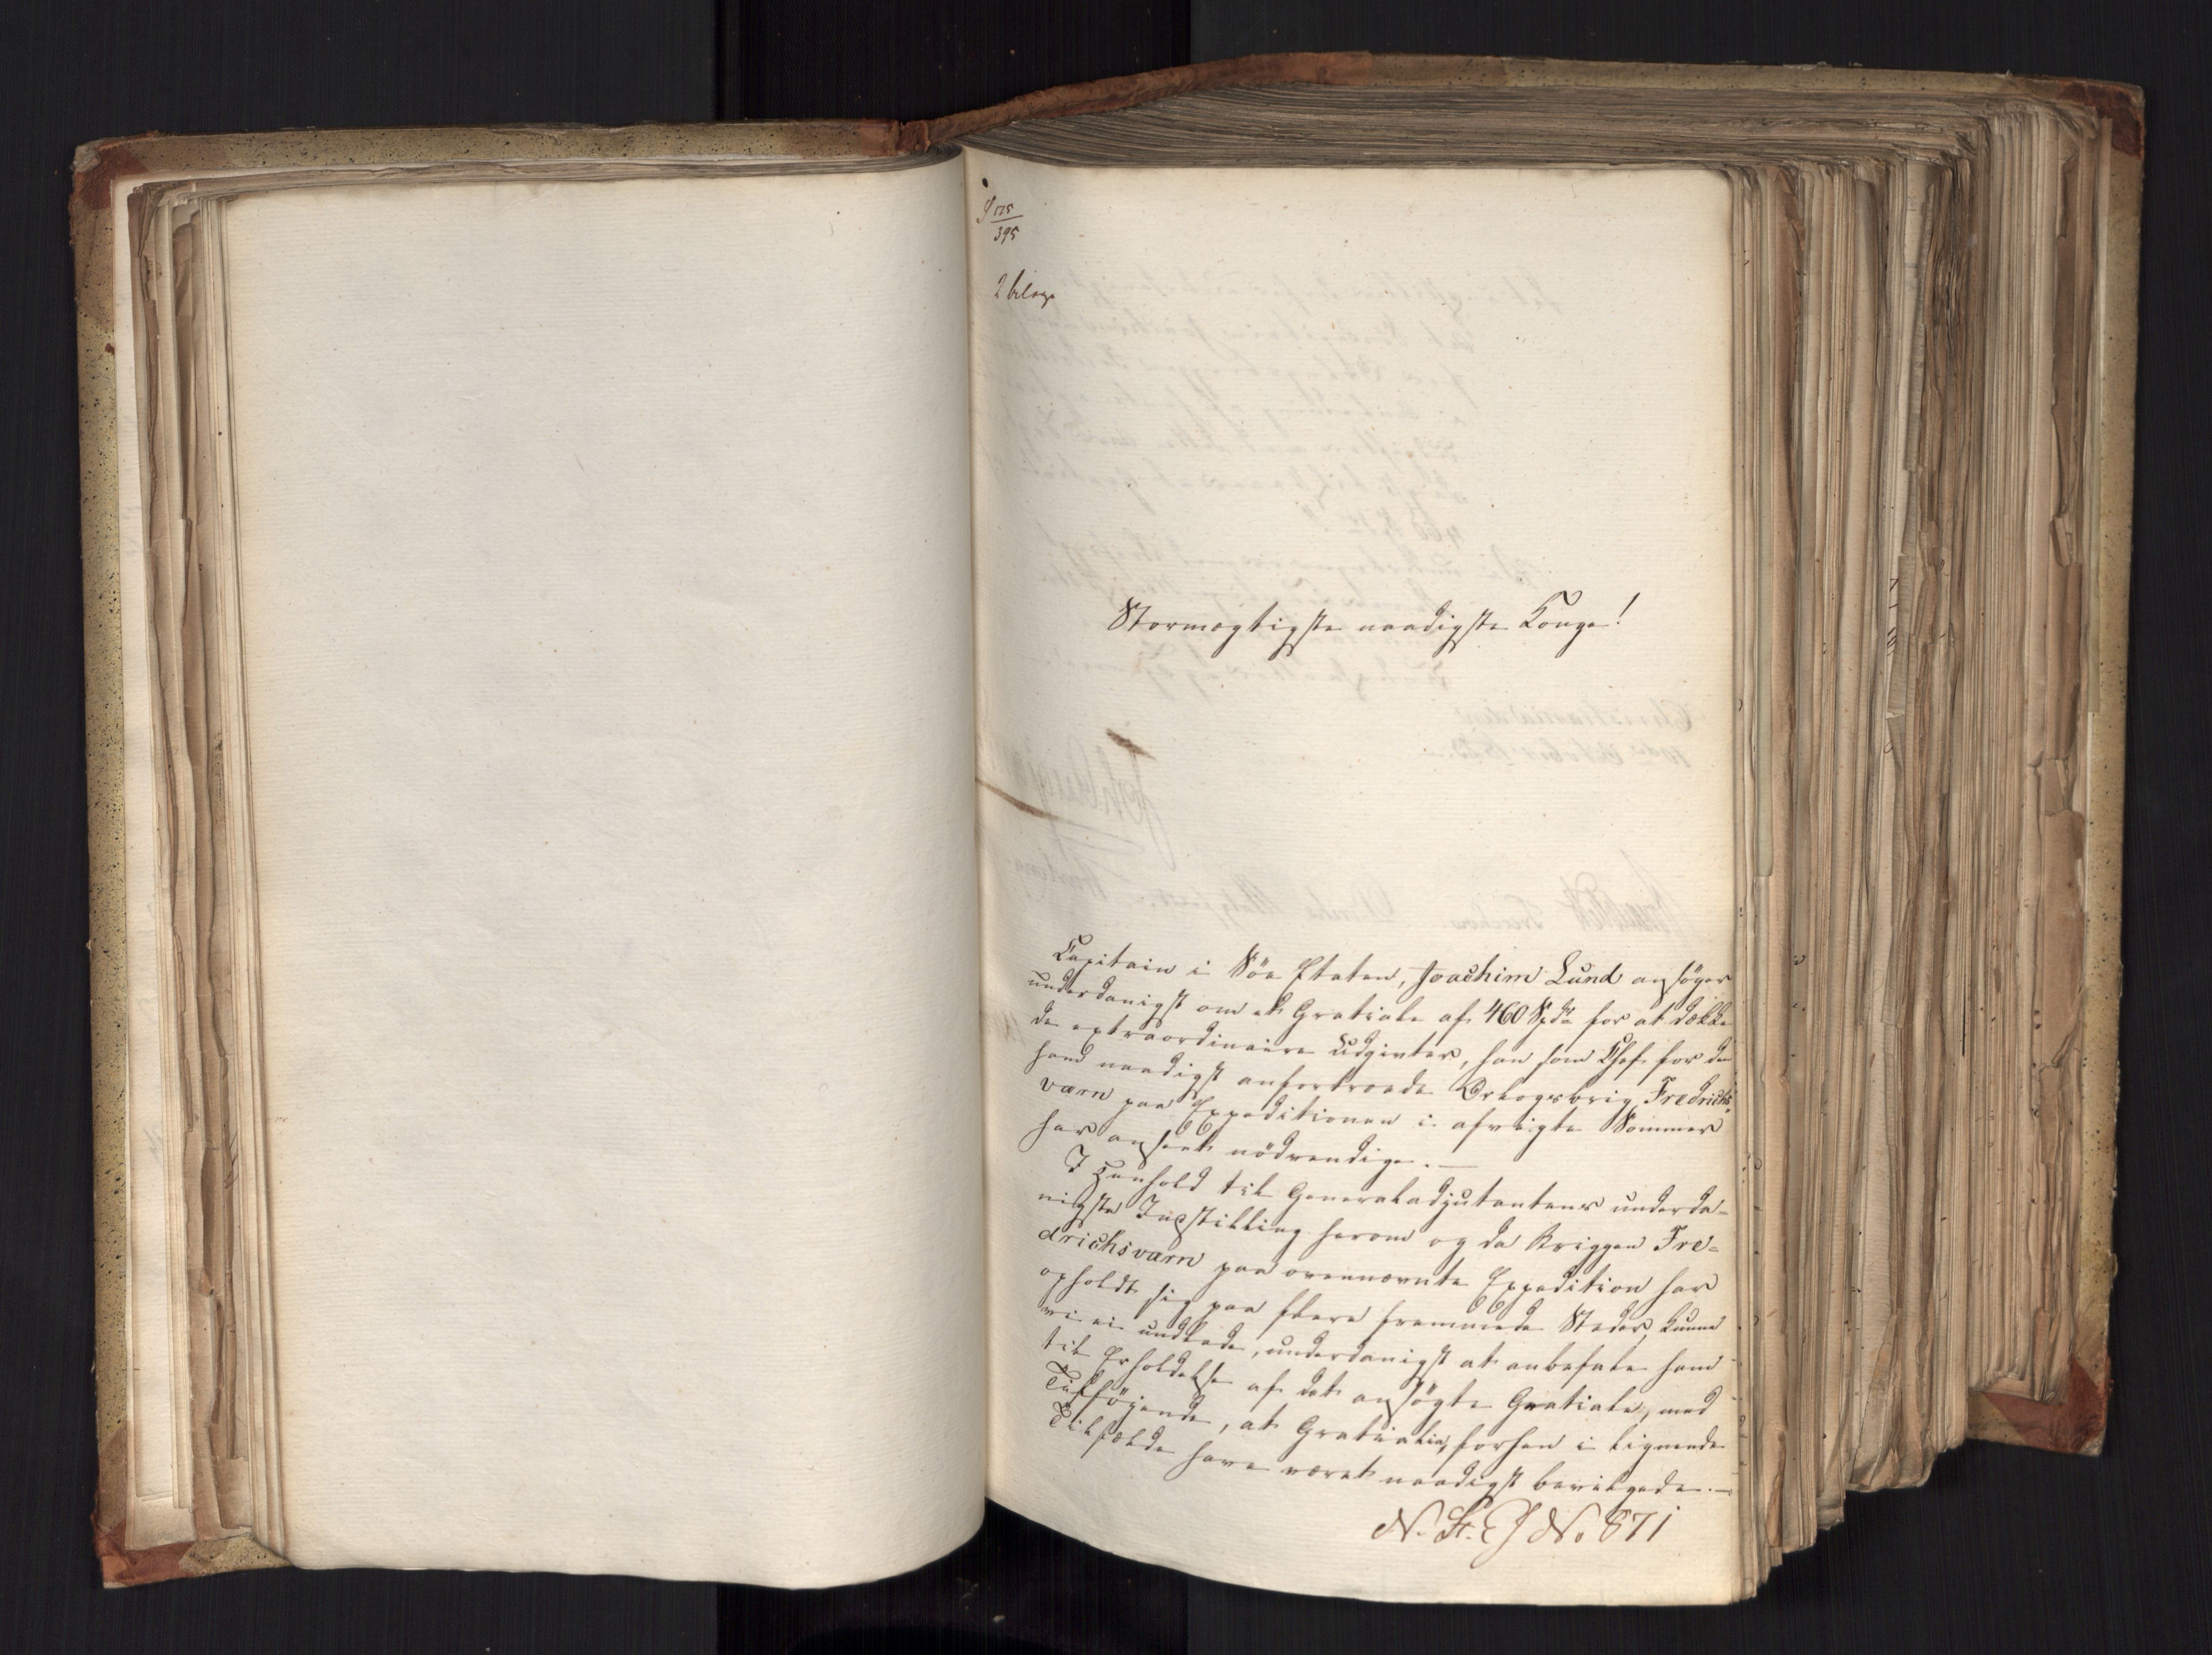 395
2 bilage
Stormægtigste naadigste Konge!
Capitain i Söe Etaten, Joachim Lund ansöger
underdanigst om et Gratiale af 460 Spd for at dække
de extraordinaire Udgivter, han som Chef for den
ham naadigst anfortroede Orlogsbrig Fredrichs
værn paa Expeditionen i afvigte Sommer
har anseet nödvendige. —
I Henhold til Generaladjutantens underda-
nigste Indstilling herom og da Briggen Fre-
drichsværn paa ovennævnte Expedition har
opholdt sig paa flere fremmede Steder, kunne
vi ei undlade, underdanigst at anbefale ham
til Erholdelse af det ansögte Gratiale, med
Tilföiende, at Gratialier, forhen i lignende
Tilfælde have været naadigst bevilgede. —
N. St. C J No 871